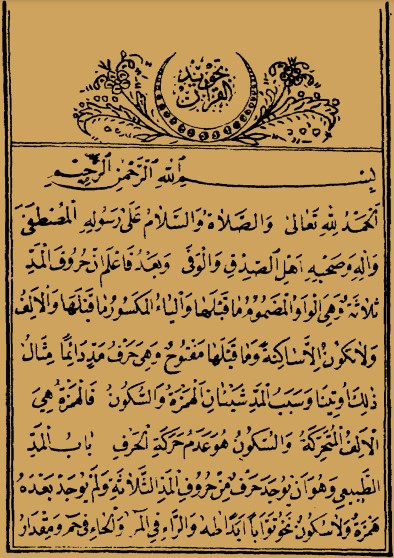 تجويد
القرآن
بِسْمِ اللهِ الرَّحْمٰنِ الرَّحِيمِ
اَلْحَمْدُ لِلّٰهِ تَعَالٰى وَالصَّلَاةُ وَالسَّلَامُ عَلٰى رَسُولِهِ الْمُصْطَفٰى
وَاٰلِهِ وَصَحْبِهِ اَهْلِ الصِّدْقِ وَالْوَفٰى وَبَعْدُ فَاعْلَمْ اَنَّ حُرُوفَ الْمَدِّ
ثَلَاثَةٌ وَهِىَ الْوَاوُ الْمَضْمُومُ مَا قَبْلَهَا وَالْيَاءُ الْمَكْسُورُ مَا قَبْلَهَا وَالْاَلِفُ
وَلَا تَكُونُ اِلَّا سَاكِنَةً وَمَا قَبْلَهَا مَفْتُوحٌ وَهِىَ حَرْفُ مَدٍّ دَائِمًا مِثَالُ
ذٰلِكَ اُوتِينَا وَسَبَبُ الْمَدِّ شَيْئَانِ اَلْهَمْزَةُ وَالسُّكُونُ فَالْهَمْزَةُ هِىَ
الْاَلِفُ الْمُتَحَرِّكَةُ وَالسُّكُونُ هُوَ عَدَمُ حَرَكَةِ الْحَرْفِ بَابُ الْمَدِّ
الطَّبِيعِى وَهُوَ اَنْ يُوجَدَ حَرْفٌ مِنْ حُرُوفِ الْمَدِّ الثَّلَاثَةِ وَلَمْ يُوجَدْ بَعْدَهُ
هَمْزَةٌ وَلَا سُكُونٌ نَحْوُ تَوَّابًا اَبَدًا طٰهٰ وَالرَّاءِ فِى الٓمٓرٰ وَالْحَاءِ فِى حٰمٓ وَمِقْدَارُ